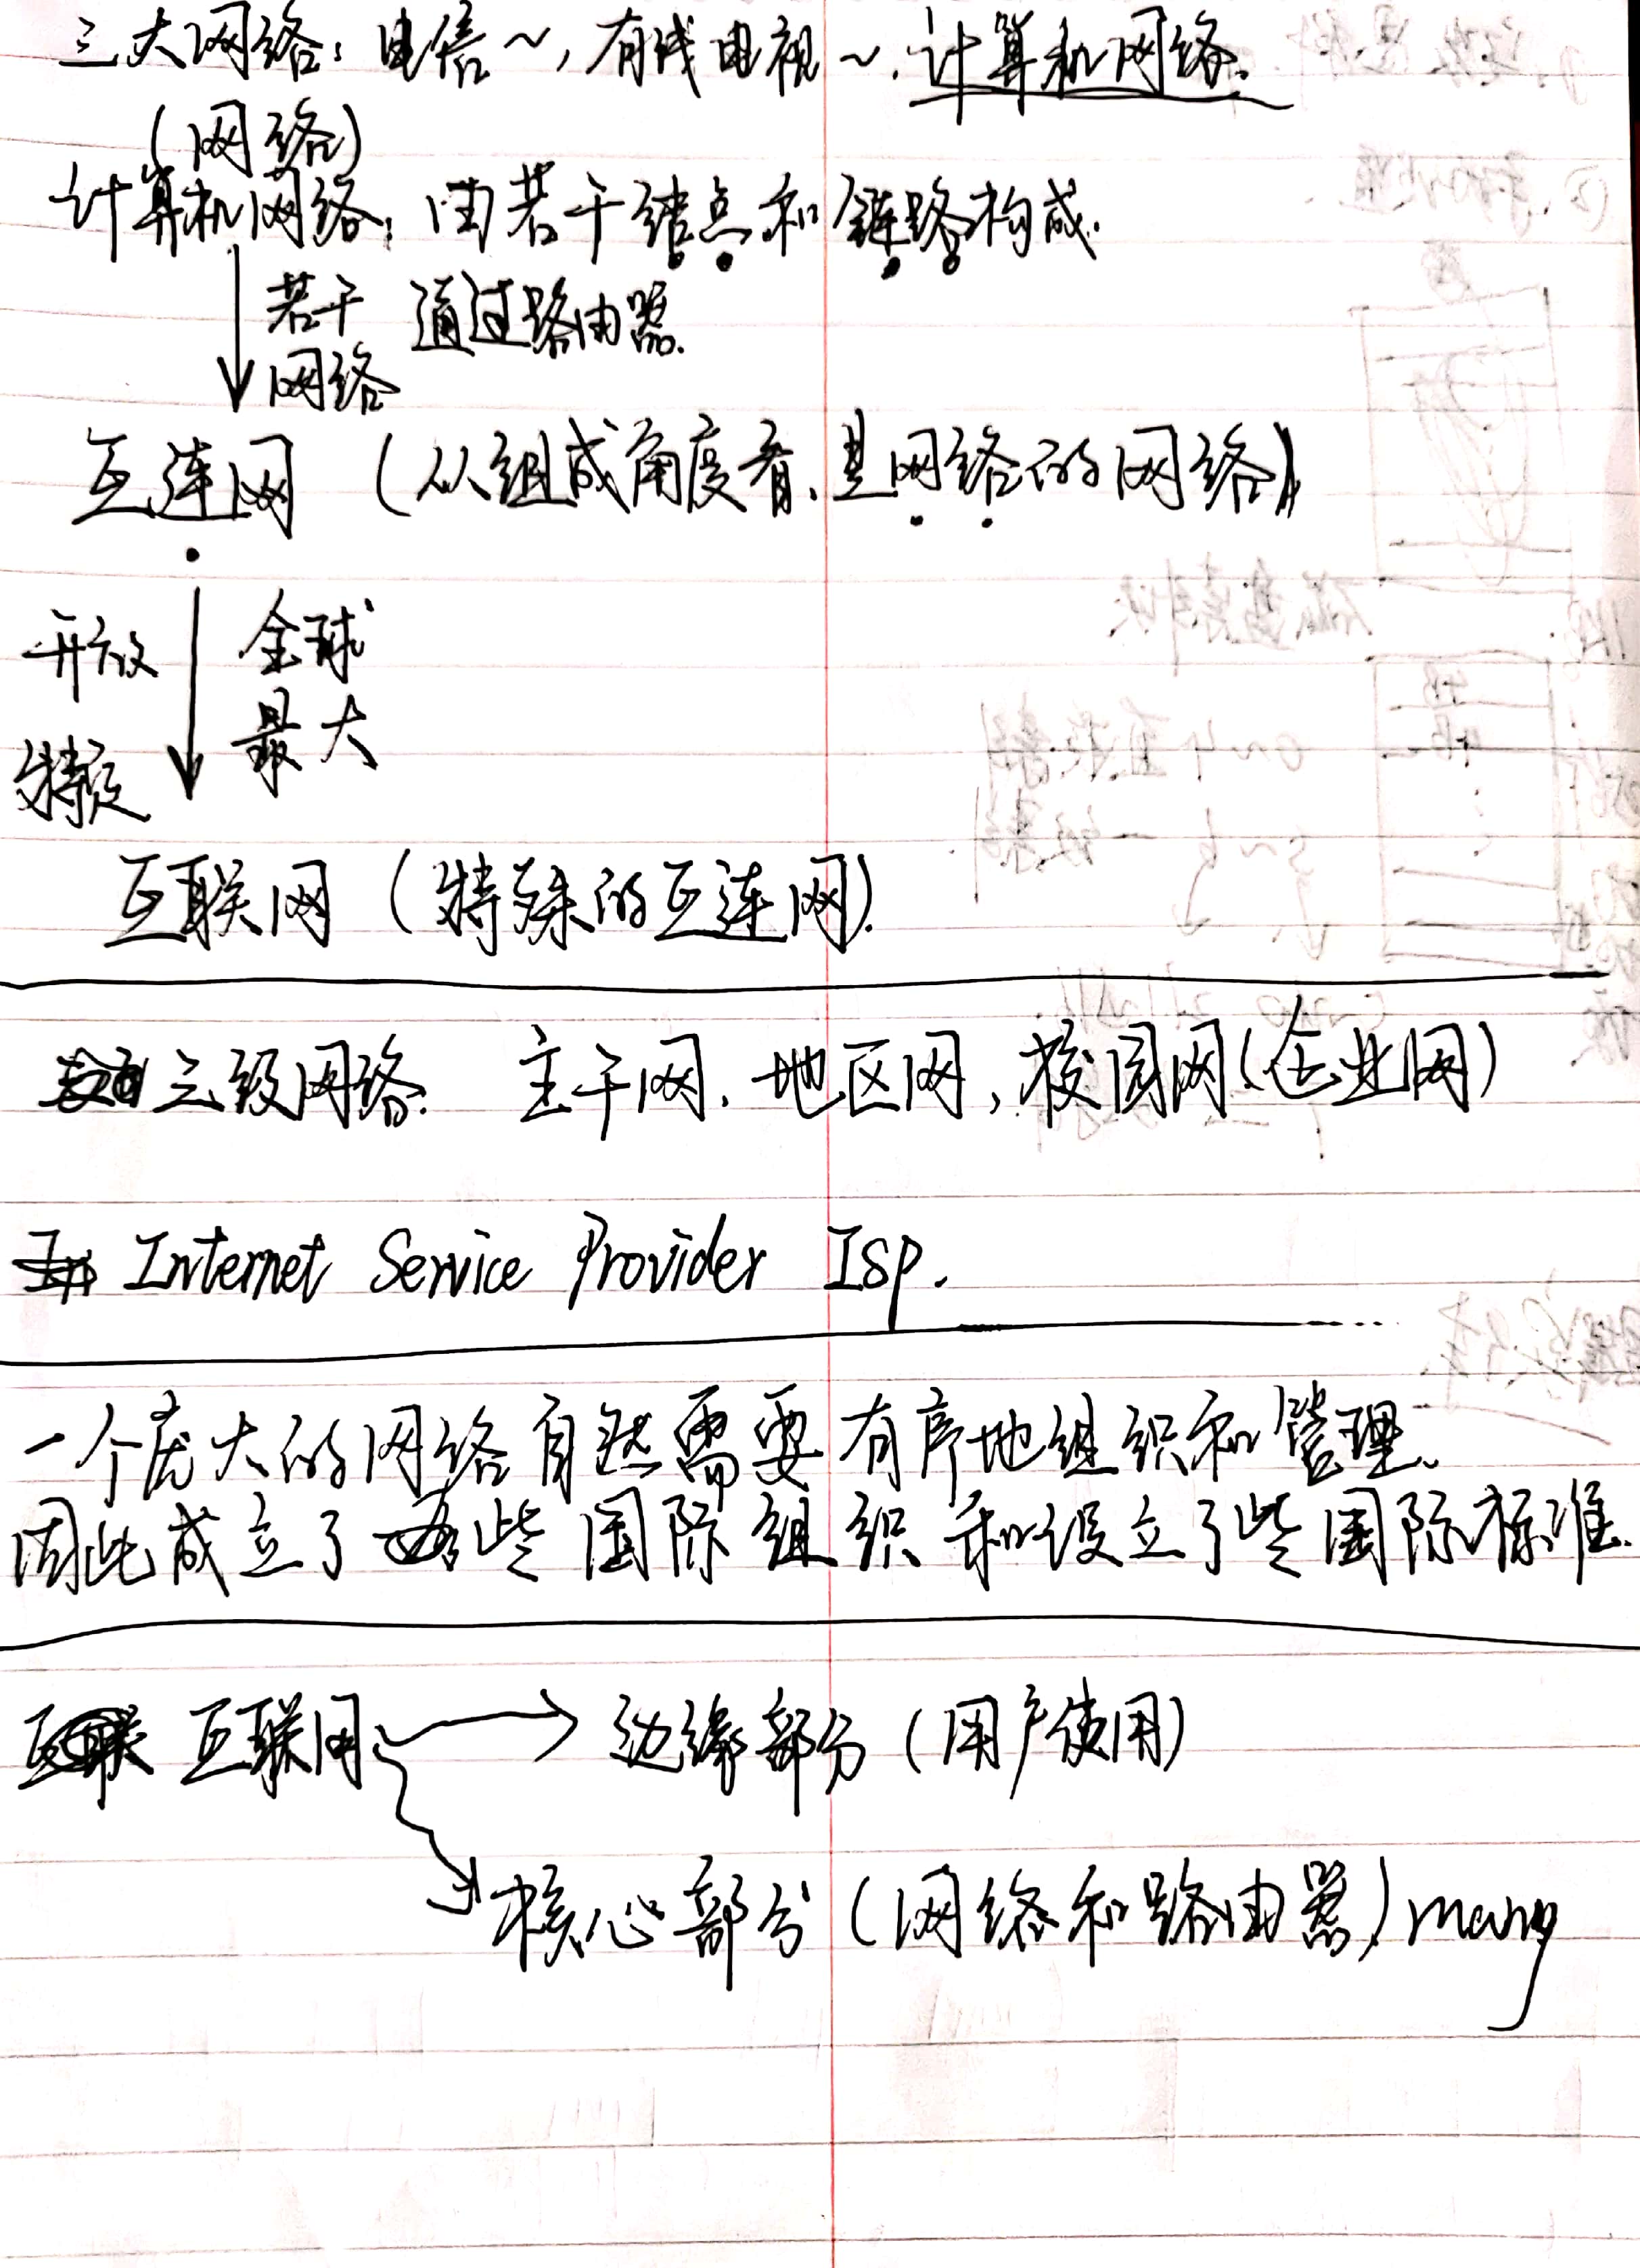 三大网络：电信～，有线电视～，计算机网络.
(网络)
计算机网络：由若干结点和链路构成.
若干 通过路由器.
网络
互连网（从组成角度看、是网络的网络）
开放 全球
最大
特定
互联网（特殊的互连网）.
三级网络. 主干网、地区网，校园网（企业网）
Internet Service Provider ISP.
一个庞大的网络自然需要有序地组织和管理、
因此成立了些国际组织和设立了些国际标准.
互联网 → 边缘部分（用户使用）
核心部分（网络和路由器）many